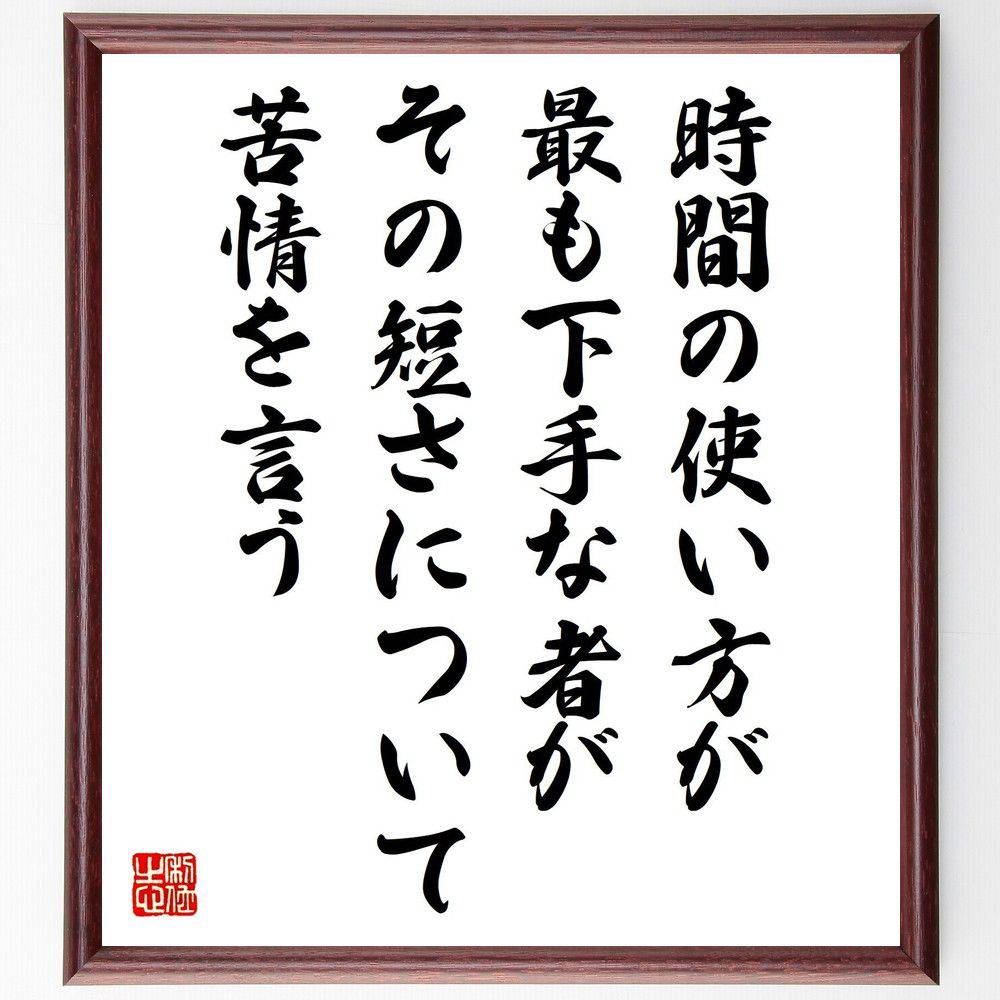 時間の使い方が
最も下手な者が
その短さについて
苦情を言う